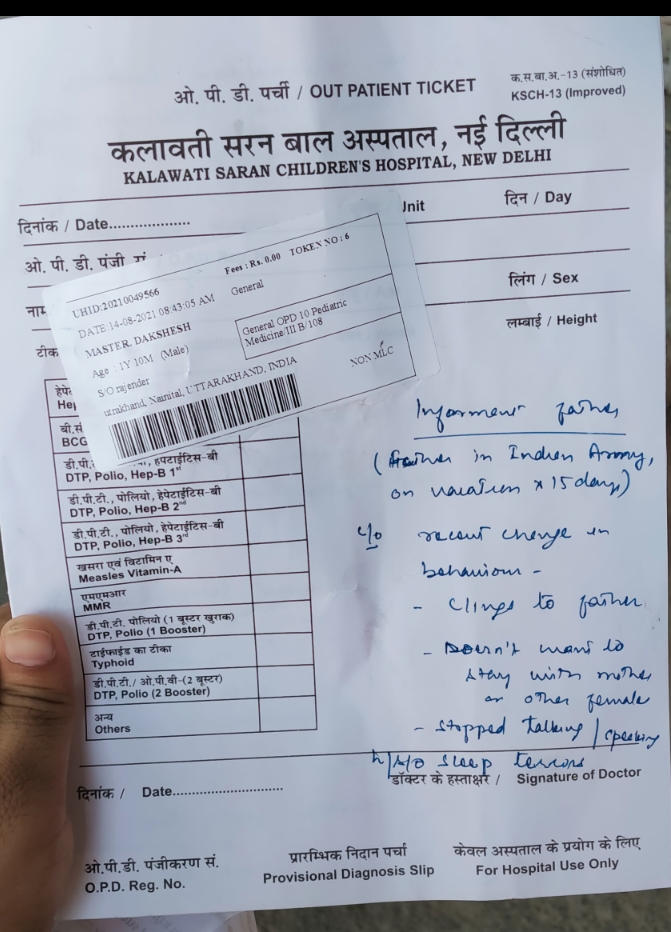 ओ. पी. डी. पर्ची / OUT PATIENT TICKET
क.स.बा.अ.-13 (संशोधित)
KSCH-13 (Improved)
कलावती सरन बाल अस्पताल, नई दिल्ली
KALAWATI SARAN CHILDREN'S HOSPITAL, NEW DELHI
दिनांक / Date...................
Unit
दिन / Day
ओ. पी. डी. पंजी
नाम
लिंग / Sex
टीक
लम्बाई / Height
Fees : Rs. 0.00 TOKEN NO : 6
UHID:20210049566
DATE:14-08-2021 08:43:05 AM General
MASTER. DAKSHESH
Age : 1Y 10M (Male)
General OPD 10 Pediatric
Medicine/III B/108
S/O rajender
utrakhand, Nainital, UTTARAKHAND, INDIA
NON MLC
हेपे
Hep
बी.सं
BCG
डी.पी. हेपटाईटिस-बी
DTP, Polio, Hep-B 1st
डी.पी.टी., पोलियो, हेपेटाईटिस-बी
DTP, Polio, Hep-B 2nd
डी.पी.टी., पोलियो, हेपेटाईटिस-बी
DTP, Polio, Hep-B 3rd
खसरा एवं विटामिन ए
Measles Vitamin-A
एमएमआर
MMR
डी.पी.टी. पोलियो (1 बूस्टर खुराक)
DTP, Polio (1 Booster)
टाईफाईड का टीका
Typhoid
डी.पी.टी./ ओ.पी.वी-(2 बूस्टर)
DTP, Polio (2 Booster)
अन्य
Others
Informent father
(Father in Indian Army,
on vacation x 15 days)
c/o recent change in
behaviour -
- Clings to father
- Doesn't want to
stay with mother
or other female
- Stopped talking / speaking
h/o sleep terrors
डॉक्टर के हस्ताक्षर / Signature of Doctor
दिनांक / Date............................
ओ.पी.डी. पंजीकरण सं.
O.P.D. Reg. No.
प्रारम्भिक निदान पर्चा
Provisional Diagnosis Slip
केवल अस्पताल के प्रयोग के लिए
For Hospital Use Only